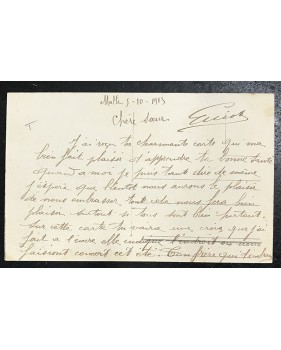 5-10-1913
Chère sœur
J'ai reçu ta charmante carte qui m'a
bien fait plaisir d'apprendre ta bonne santé
quand a moi je puis tant dire de même
j'espère que bientôt nous aurons le plaisir
de nous embrasser tout cela nous fera bien
plaisir surtout si tous sont bien portant.
Sur cette carte tu verra une croix que j'ai
fait a l'encre elle indique l'endroit où nous
faisions cet été. Ton frère qui t'embrasse